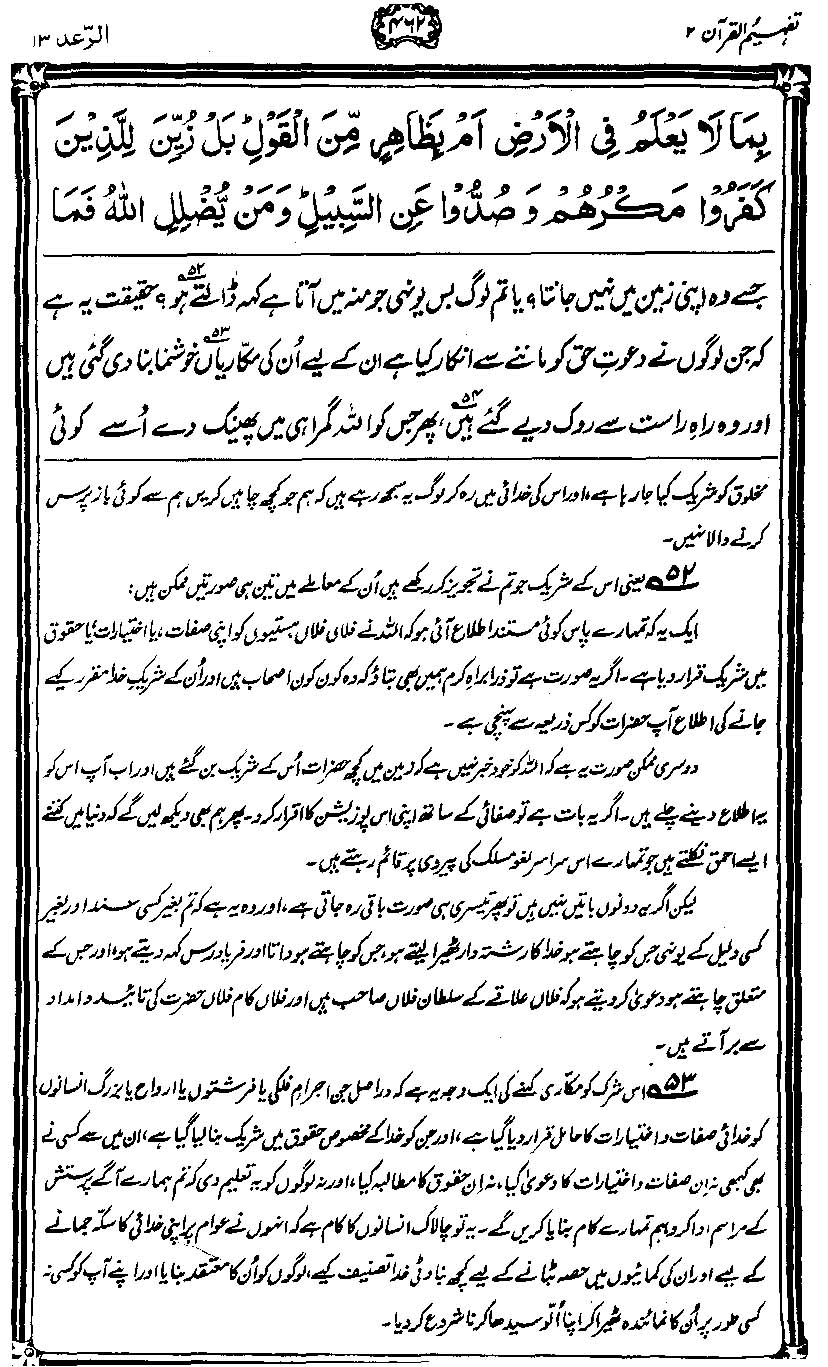 تفہیم القرآن ۲
۴۶۲
الرّعد ۱۳
بِمَا لَا يَعْلَمُ فِي الْاَرْضِ اَمْ بِظَاهِرٍ مِّنَ الْقَوْلِ ؕ بَلْ زُيِّنَ لِلَّذِيْنَ
كَفَرُوْا مَكْرُهُمْ وَ صُدُّوْا عَنِ السَّبِيْلِ ؕ وَ مَنْ يُّضْلِلِ اللّٰهُ فَمَا
جسے وہ اپنی زمین میں نہیں جانتا؟ یا تم لوگ بس یونہی جو منہ میں آتا ہے کہہ ڈالتے ہو؟ ۵۲ حقیقت یہ ہے
کہ جن لوگوں نے دعوتِ حق کو ماننے سے انکار کیا ہے ان کے لیے اُن کی مکّاریاں ۵۳ خوشنما بنا دی گئی ہیں
اور وہ راہِ راست سے روک دیے گئے ہیں، ۵۴ پھر جس کو اللہ گمراہی میں پھینک دے اُسے کوئی
مخلوق کو شریک کیا جا رہا ہے، اور اس کی خدائی میں رہ کر لوگ یہ سمجھ رہے ہیں کہ ہم جو کچھ چاہیں کریں ہم سے کوئی باز پرس
کرنے والا نہیں۔
۵۲ یعنی اس کے شریک جو تم نے تجویز کر رکھے ہیں اُن کے معاملے میں تین ہی صورتیں ممکن ہیں:
ایک یہ کہ تمہارے پاس کوئی مستند اطلاع آئی ہو کہ اللہ نے فلاں فلاں ہستیوں کو اپنی صفات، یا اختیارات، یا حقوق
میں شریک قرار دیا ہے۔ اگر یہ صورت ہے تو ذرا براہِ کرم ہمیں بھی بتاؤ کہ وہ کون کون اصحاب ہیں اور اُن کے شریکِ خدا مقرر کیے
جانے کی اطلاع آپ حضرات کو کس ذریعہ سے پہنچی ہے۔
دوسری ممکن صورت یہ ہے کہ اللہ کو خود خبر نہیں ہے کہ زمین میں کچھ حضرات اُس کے شریک بن گئے ہیں اور اب آپ اس کو
یہ اطلاع دینے چلے ہیں۔ اگر یہ بات ہے تو صفائی کے ساتھ اپنی اس پوزیشن کا اقرار کرو۔ پھر ہم بھی دیکھ لیں گے کہ دنیا میں کتنے
ایسے احمق نکلتے ہیں جو تمہارے اس سراسر لغو مسلک کی پیروی پر قائم رہتے ہیں۔
لیکن اگر یہ دونوں باتیں نہیں ہیں تو پھر تیسری ہی صورت باقی رہ جاتی ہے، اور وہ یہ ہے کہ تم بغیر کسی سند اور بغیر
کسی دلیل کے یونہی جس کو چاہتے ہو خدا کا رشتہ دار ٹھیرا لیتے ہو، جس کو چاہتے ہو داتا اور فریاد رس کہہ دیتے ہو، اور جس کے
متعلق چاہتے ہو دعویٰ کر دیتے ہو کہ فلاں علاقے کے سلطان فلاں صاحب ہیں اور فلاں کام فلاں حضرت کی تائید و امداد
سے بر آتے ہیں۔
۵۳ اس شرک کو مکّاری کہنے کی ایک وجہ یہ ہے کہ دراصل جن اجرامِ فلکی یا فرشتوں یا ارواح یا بزرگ انسانوں
کو خدائی صفات و اختیارات کا حامل قرار دیا گیا ہے، اور جن کو خدا کے مخصوص حقوق میں شریک بنا لیا گیا ہے، ان میں سے کسی نے
بھی کبھی نہ ان صفات و اختیارات کا دعویٰ کیا، نہ ان حقوق کا مطالبہ کیا، اور نہ لوگوں کو یہ تعلیم دی کہ تم ہمارے آگے پرستش
کے مراسم ادا کرو ہم تمہارے کام بنایا کریں گے۔ یہ تو چالاک انسانوں کا کام ہے کہ انہوں نے عوام پر اپنی خدائی کا سکّہ جمانے
کے لیے اور ان کی کمائیوں میں حصہ بٹانے کے لیے کچھ بناوٹی خدا تصنیف کیے، لوگوں کو اُن کا معتقد بنایا اور اپنے آپ کو کسی نہ
کسی طور پر اُن کا نمائندہ ٹھیرا کر اپنا اُلّو سیدھا کرنا شروع کر دیا۔